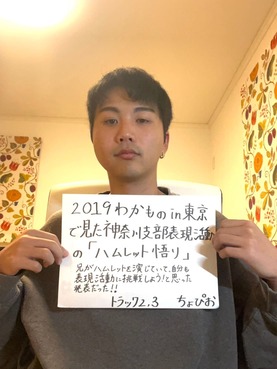 2019わかもの in 東京
で見た神奈川支部表現活動
の「ハムレット悟り」
兄がハムレットを演じていて、自分も
表現活動に挑戦しよう!と思った
発表だった!!
トラック2.3 ちょぴお